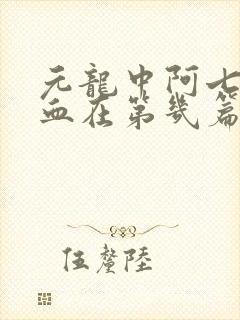 元龍中阿七
血在第幾篇
伍釐陸